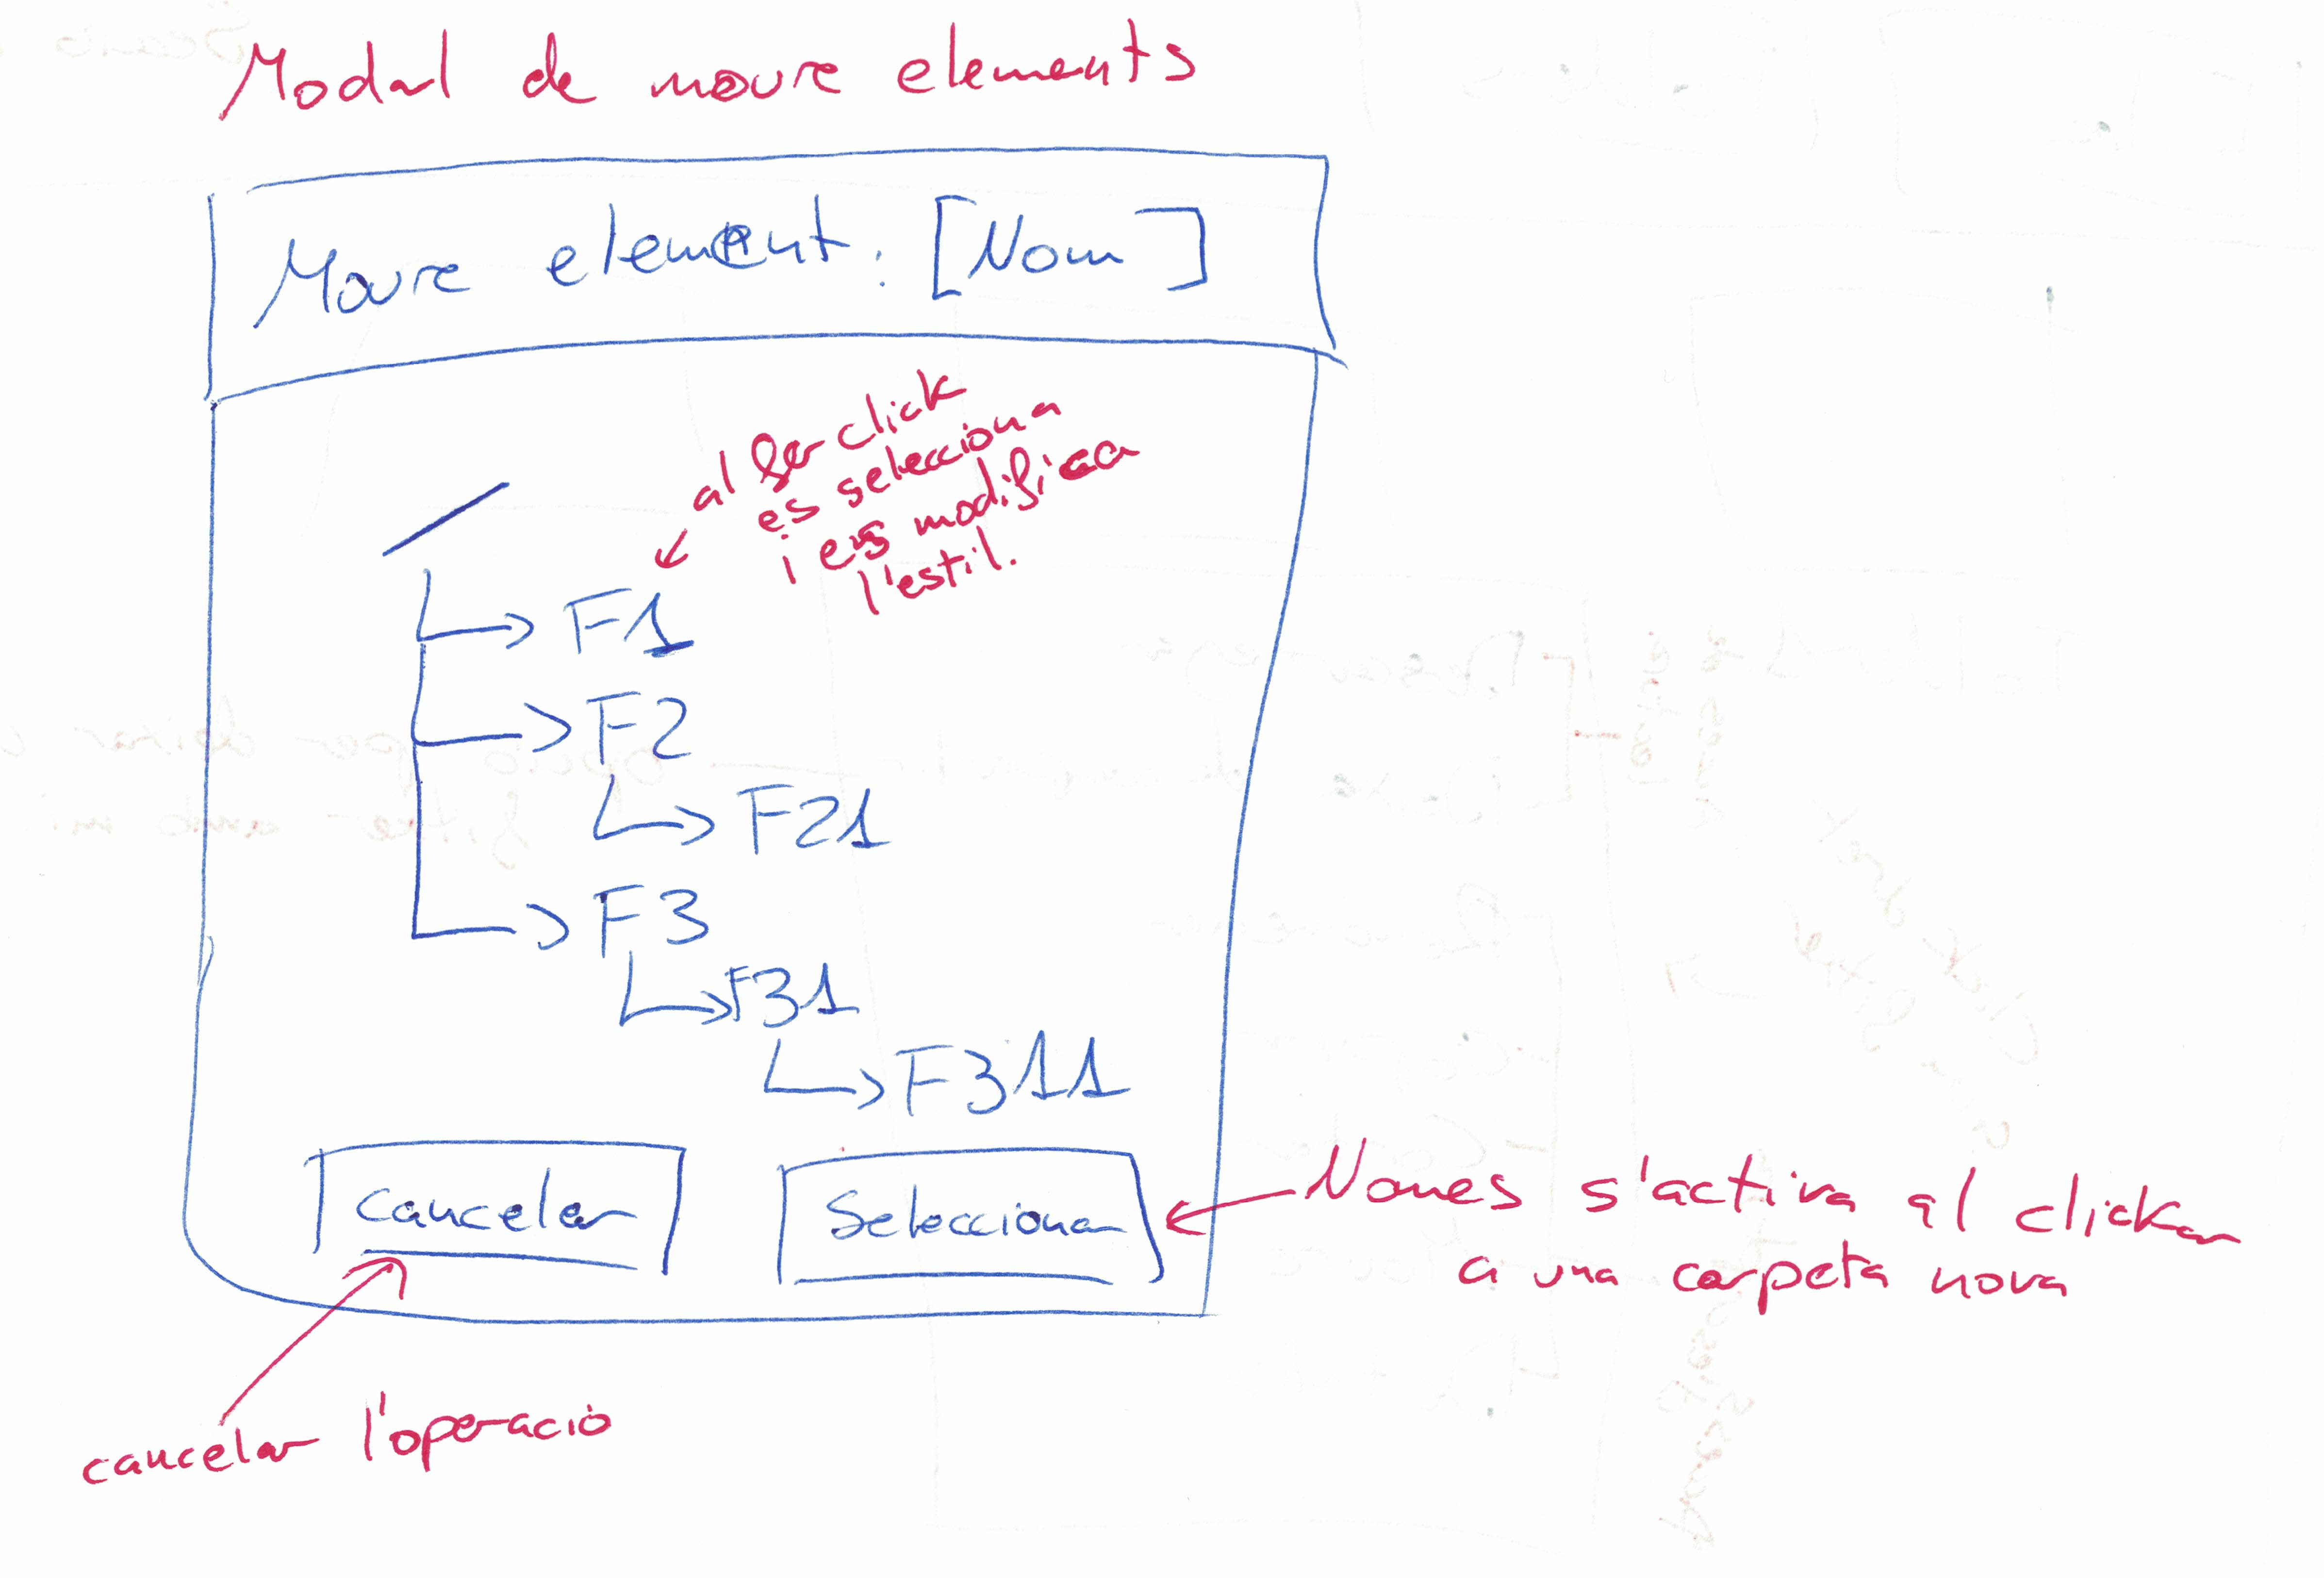 Modal de moure elements
Moure element: [Nom]
al fer click
es selecciona
i es modifica
l'estil.
/
F1
F2
F21
F3
F31
F311
Cancelar
Seleccionar
Nomes s'activa al clickar
a una carpeta nova
cancelar l'operació